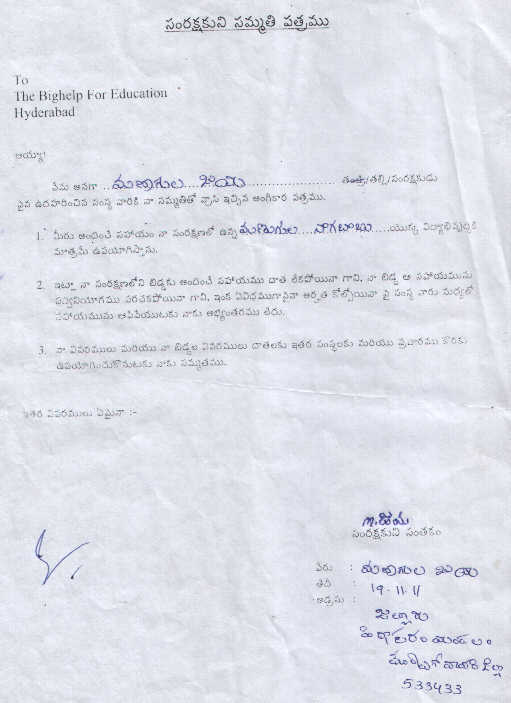 సంరక్షకుని సమ్మతి పత్రము
To
The Bighelp For Education
Hyderabad
అయ్యా!
నేను అనగా ..మణుగుల.....జయ........................ తండ్రి/తల్లి/సంరక్షకుడు
పైన ఉదహరించిన సంస్థ వారికి నా సమ్మతితో వ్రాసి ఇచ్చిన అంగీకార పత్రము.
1. మీరు అందించే సహాయం నా సంరక్షణలో ఉన్న మణుగుల....నాగబాబు.....యొక్క విద్యాభివృద్ధికి
మాత్రమే ఉపయోగిస్తాను.
2. ఇట్లా నా సంరక్షణలోని బిడ్డకు అందించే సహాయము దాత లేకపోయినా గాని, నా బిడ్డ ఆ సహాయమును
సద్వినియోగము పరచకపోయినా గాని, ఇంక ఏవిధముగానైనా అర్హత కోల్పోయినా పై సంస్థ వారు మధ్యలో
సహాయమును ఆపివేయుటకు నాకు అభ్యంతరము లేదు.
3. నా వివరములు మరియు నా బిడ్డల వివరములు దాతలకు ఇతర సంస్థలకు మరియు ప్రచారము కొరకు
ఉపయోగించుకొనుటకు నాకు సమ్మతము.
ఇతర వివరములు ఏమైనా :-
m.జయ
సంరక్షకుని సంతకం
పేరు : మణుగుల జయ
తేది : 19.11.11
అడ్రసు :
జిల్లా
533433